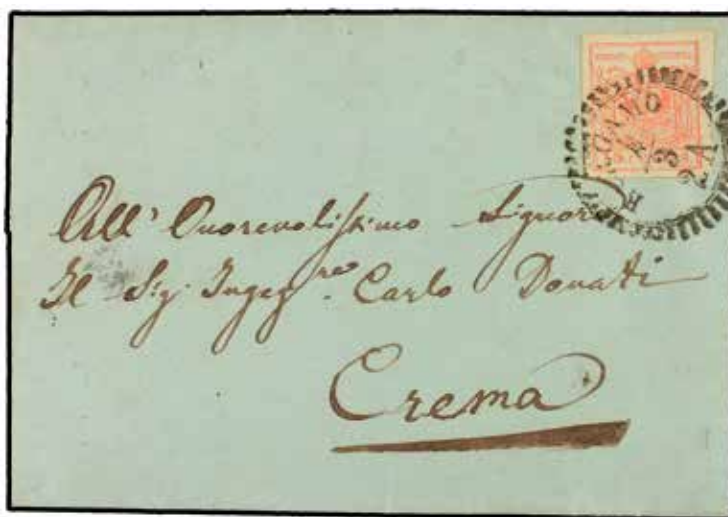 All' Onorevolissimo Signore
Il Sig. Ingegnre. Carlo Donati
Crema